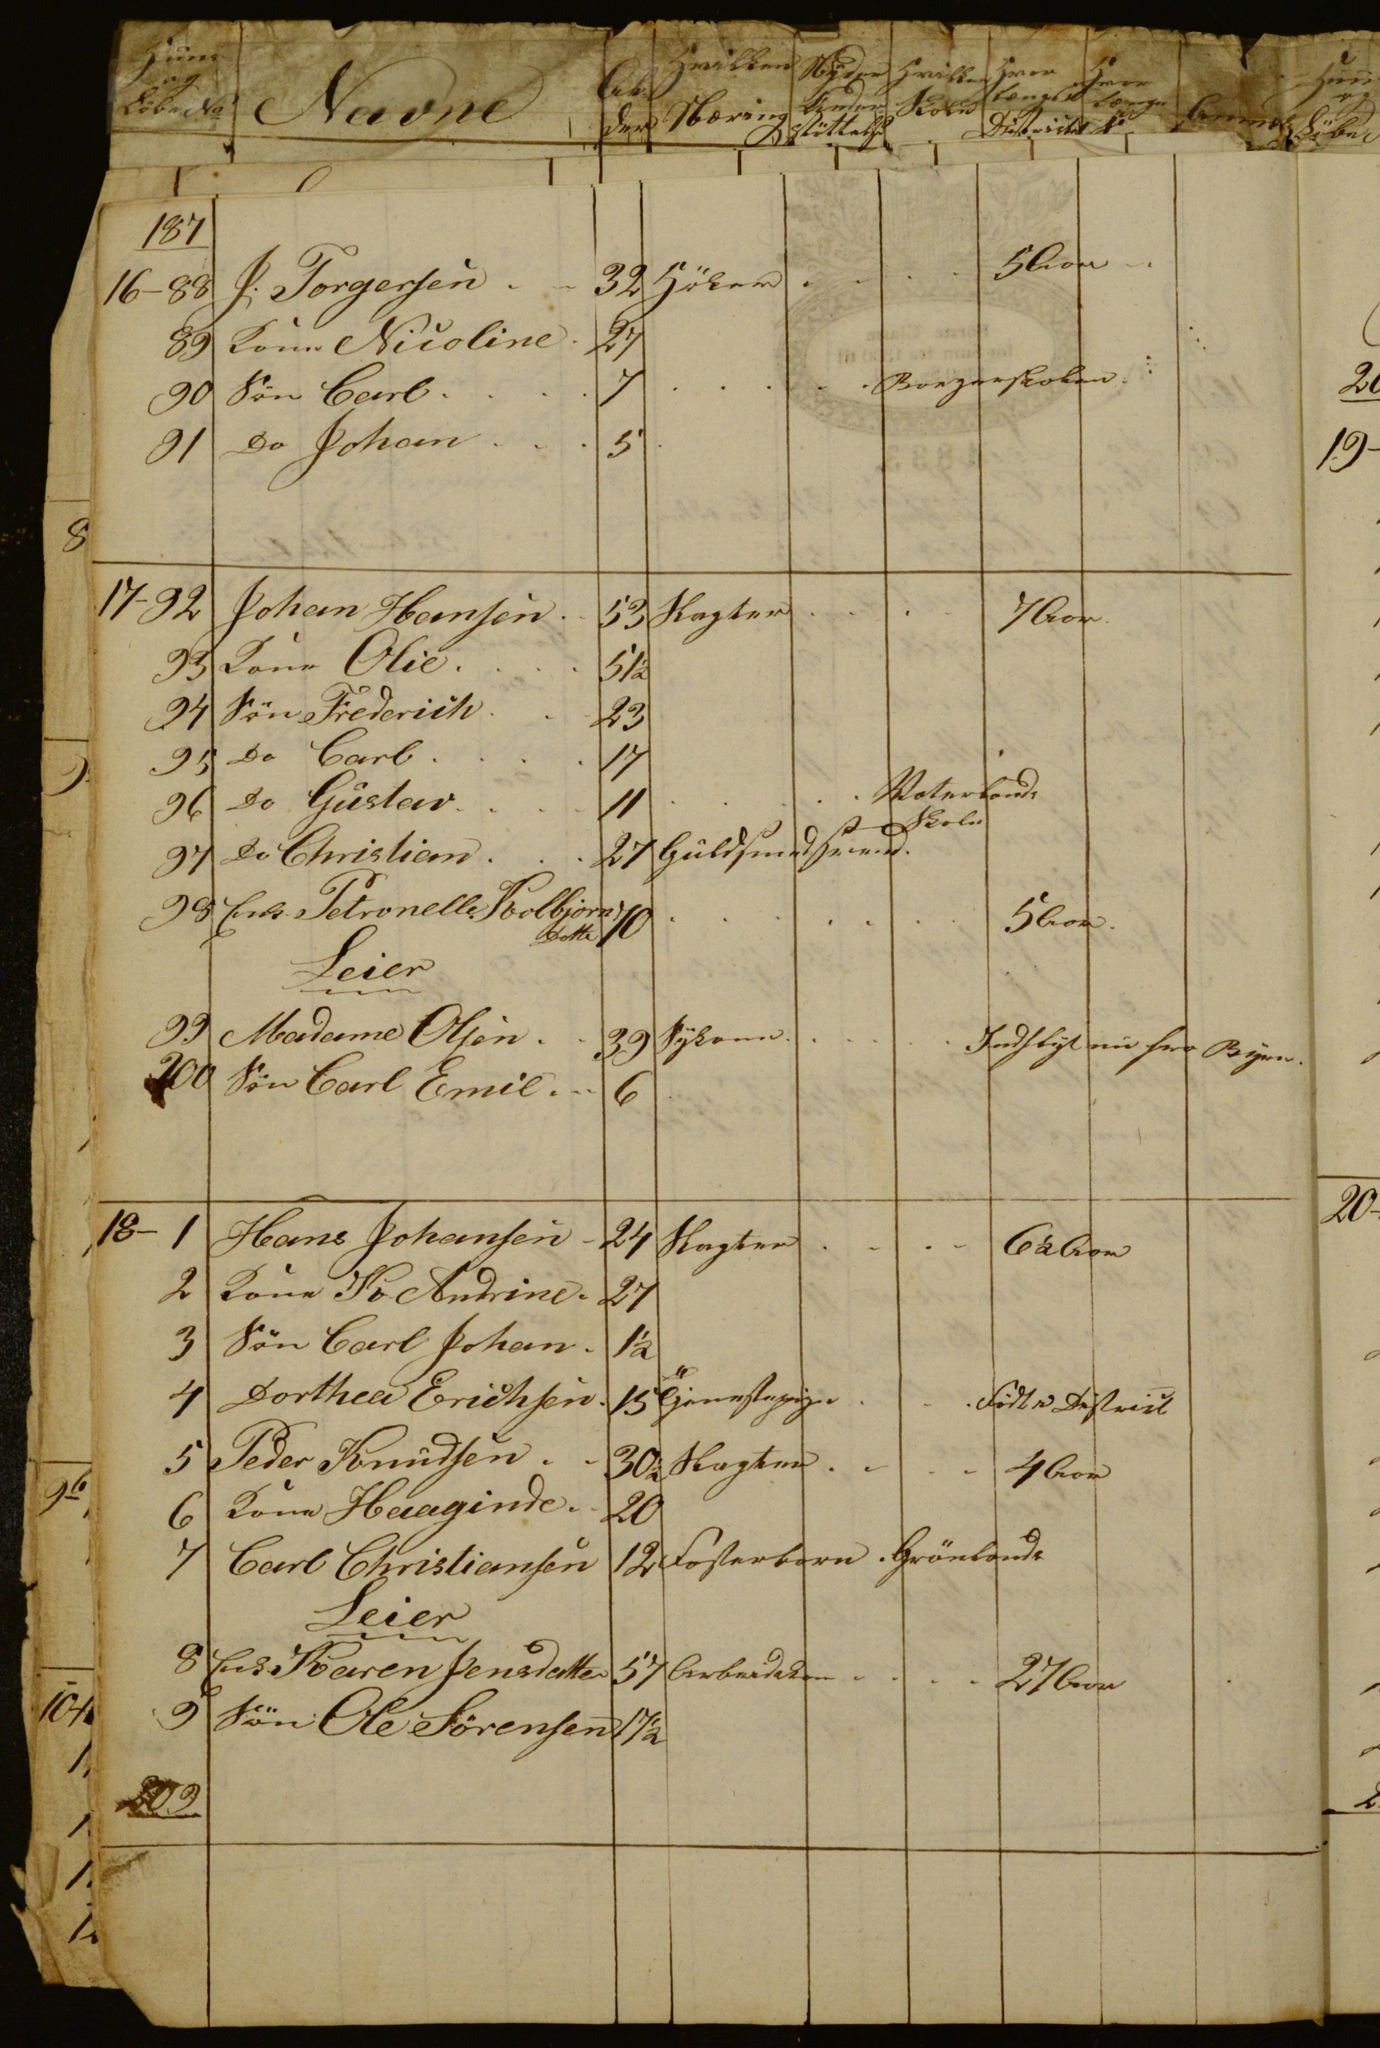 Huus og Löbe No | Navne | Alder | Hvilken Næring | Nyder Understöttelse | Hvilken Skole | Hvor længe i Districtet | Hvor længe | Anmk
187
16-88 J. Torgersen 32 Höker 5 Aar
89 Kone Nicoline 27
90 Sön Carl 7 Borgerskolen
91 Do Johan 5
17-92 Johan Hansen 53 Slagter 7 Aar
93 Kone Olie 51½
94 Sön Frederich 23
95 Do Carl 17
96 Do Gustav 11 Vaterlands Skole
97 Do Christian 27 Guldsmedsvend
98 Enke Petronelle Kolbjørns Dotter 70 5 Aar
Leier
99 Madame Olsen 39 Sykone Indflyt nu fra Byen
200 Sön Carl Emil 6
18-1 Hans Johansen 24 Slagter 6½ Aar
2 Kone Ka Andrine 27
3 Sön Carl Johan 1½
4 Dorthea Erichsen 15 Tjenestepige Födt i District
5 Peder Knudsen 30½ Slagter 4 Aar
6 Kone Haaginde 20
7 Carl Christiansen 12 Fosterbarn Grönlands
Leier
8 Enke Karen Jensdatter 57 27 Aar
9 Sön Ole Sörensen 17½
209